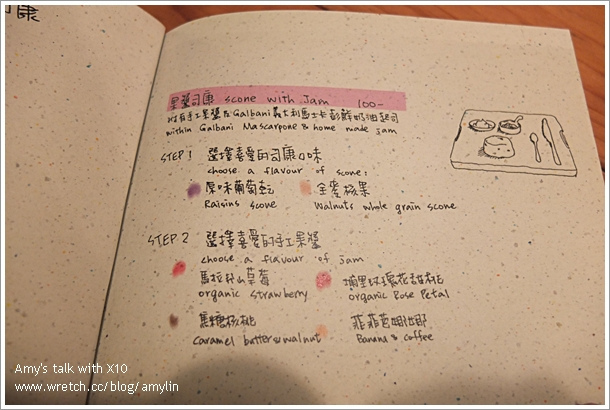 康
果醬司康 scone with Jam 100-
within Galbani Mascarpone & home made jam
STEP 1 選擇喜愛的司康口味
choose a flavour of scone:
原味葡萄乾 全麥核果
Raisins scone Walnuts whole grain scone
STEP 2 選擇喜愛的手工果醬
choose a flavour of jam
馬拉什么草莓 埔里玫瑰花甜桃
organic strawberry organic Rose Petal
焦糖核桃 菲菲芭娜
Caramel butter & walnut Banana & coffee
Amy's talk with X10
www.wretch.cc/blog/amylin